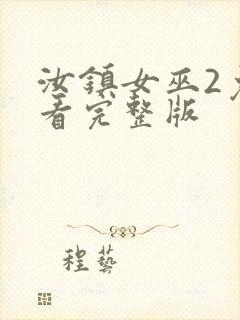 汝鎮女巫2
看完整版
程藝